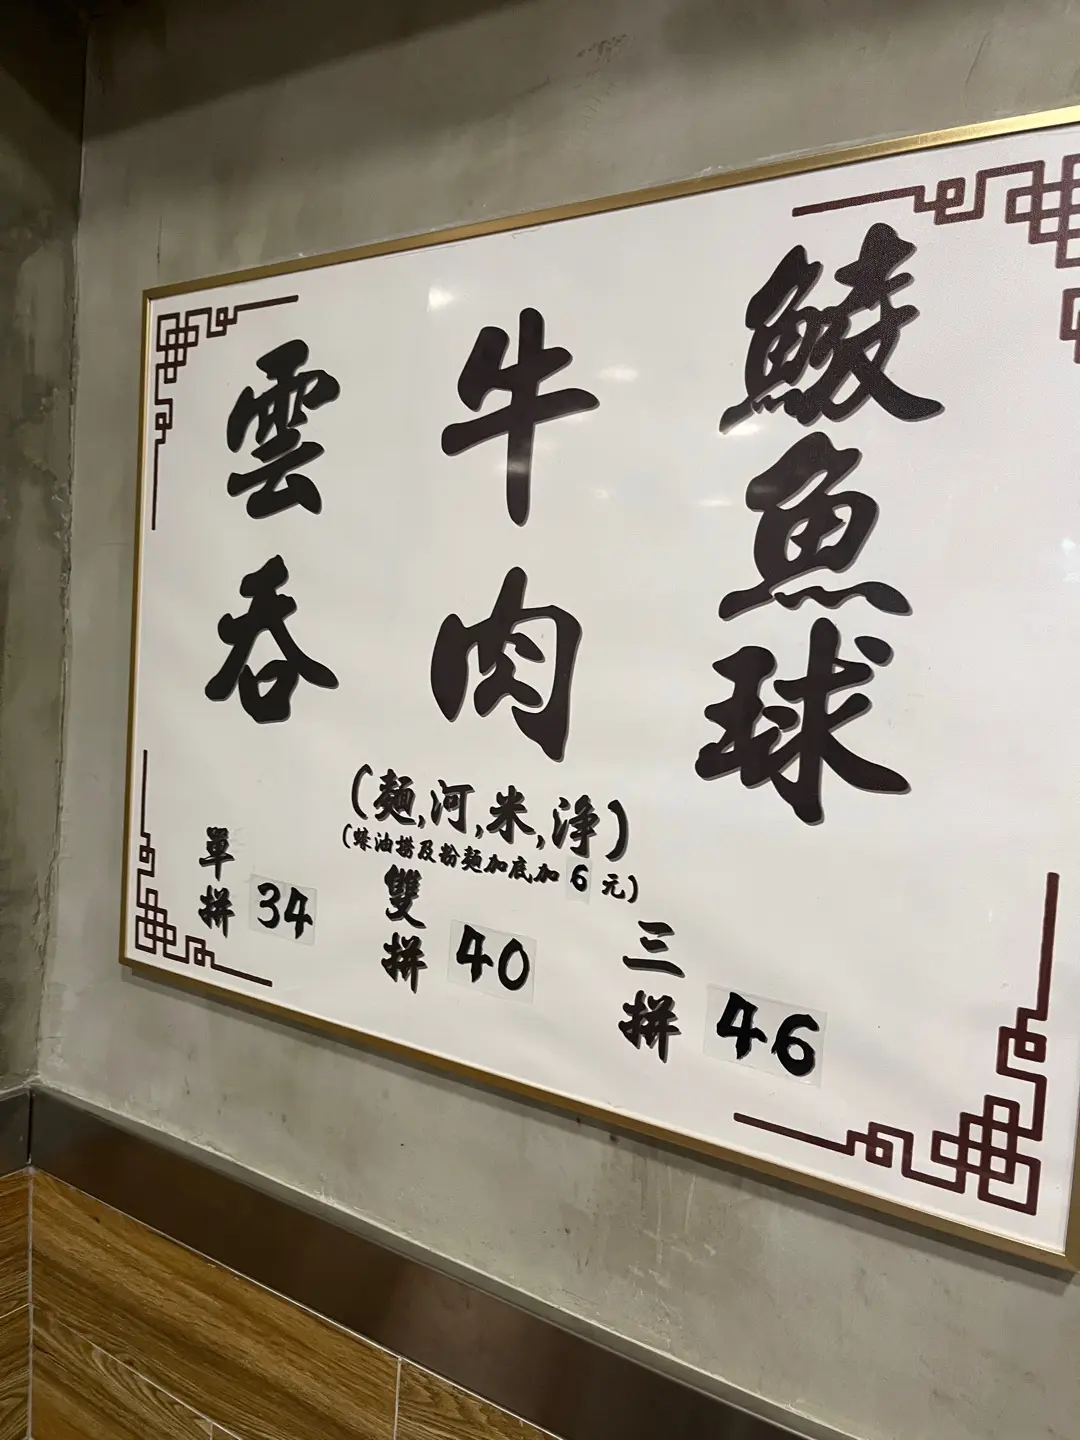 雲呑
牛肉
鯪魚球
(麵,河,米,淨)
(蠔油撈及粉麵加底加6元)
單拼 34
雙拼 40
三拼 46